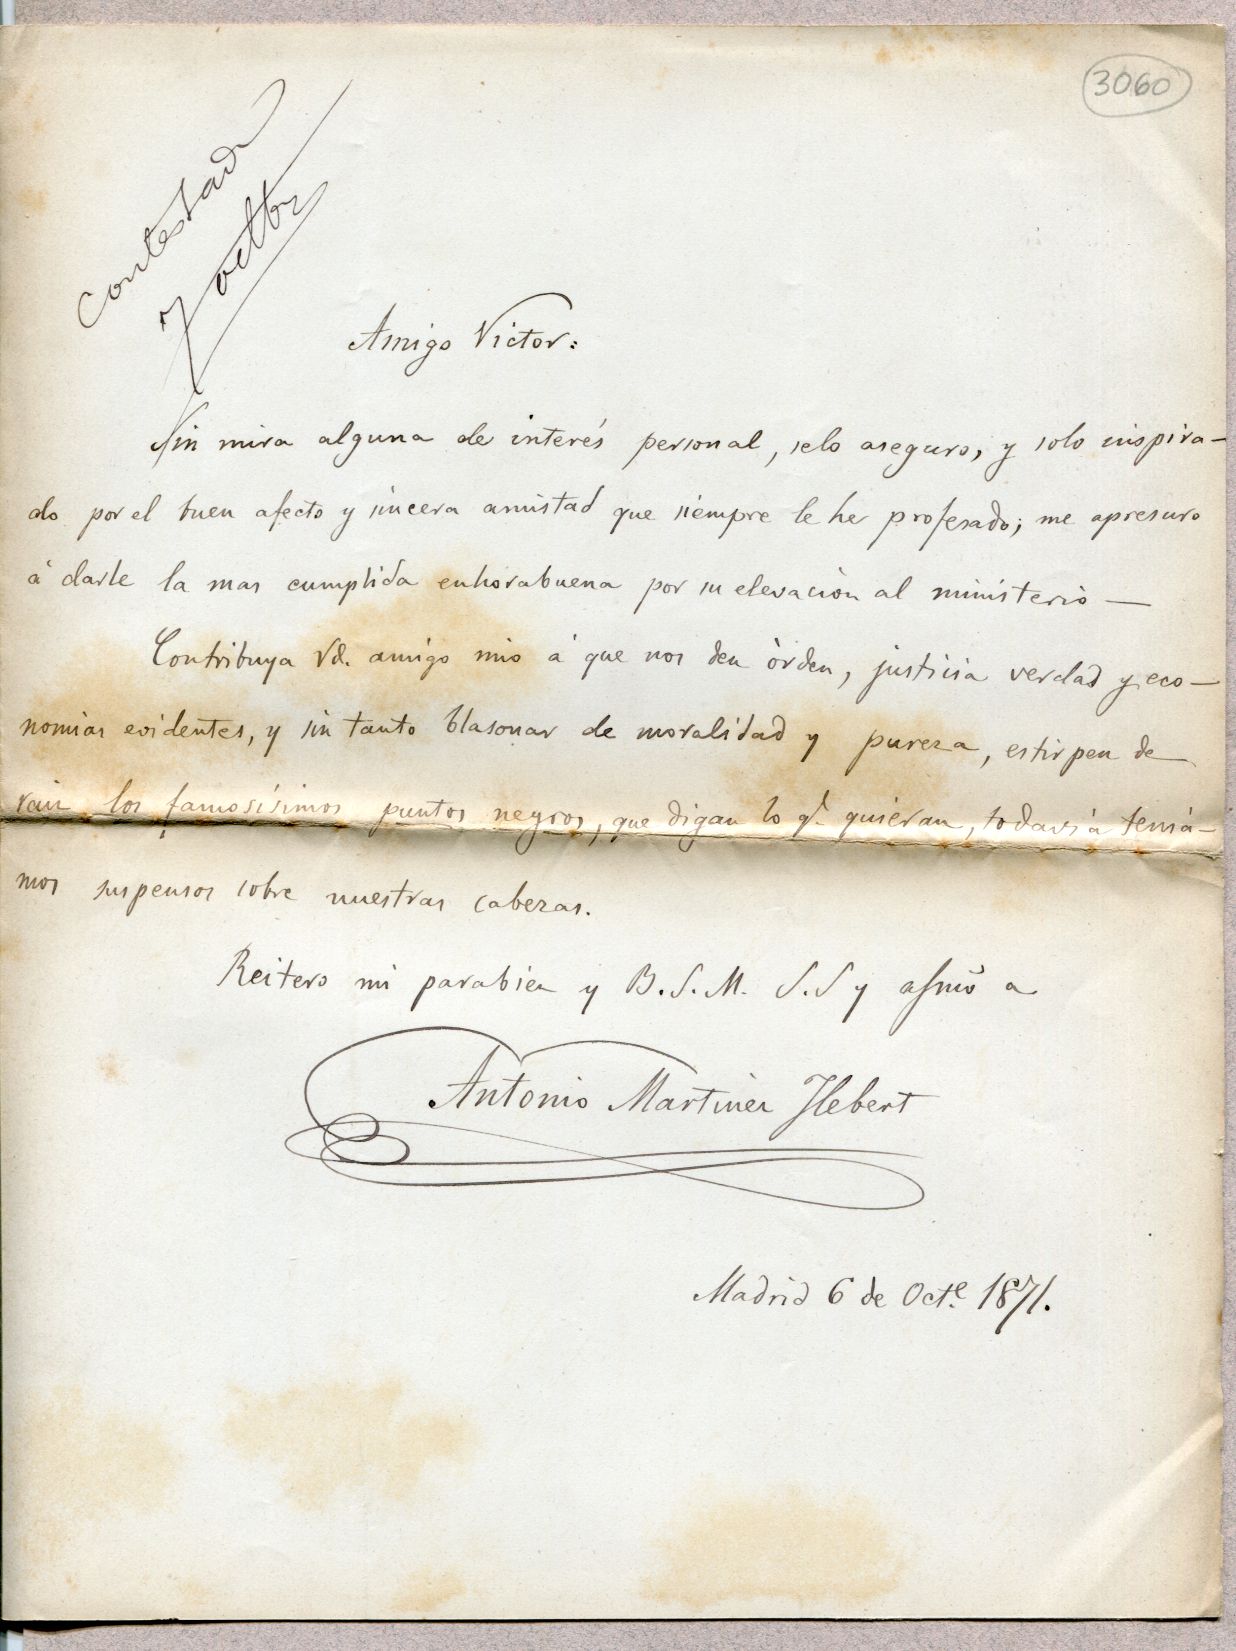 3060
Contestada
7 octbe
Amigo Victor:
Sin mira alguna de interés personal, selo aseguro, y solo inspira-
do por el buen afecto y sincera amistad que siempre le he profesado; me apresuro
á darle la mas cumplida enhorabuena por su elevación al ministerio —
Contribuya Vd. amigo mio á que nos den órden, justicia verdad y eco-
nomias evidentes, y sin tanto blasonar de moralidad y pureza, estirpen de
raiz los famosísimos puntos negros, que digan lo q.e quieran, todavia tenia-
mos suspensos sobre nuestras cabezas.
Reitero mi parabien y B.S.M. S.S y afmo a
Antonio Martinez Hebert
Madrid 6 de Oct.e 1871.